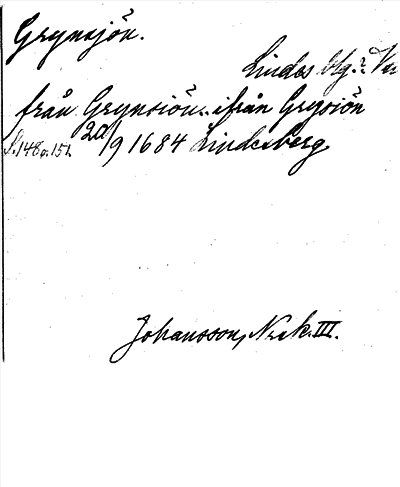 Grynsjön.
Lindes bg.? Ve
från Grynsiön.. ifrån Grysiön
S. 148 o. 151. 20/9 1684 Lindesberg
Johansson, Nork. III.